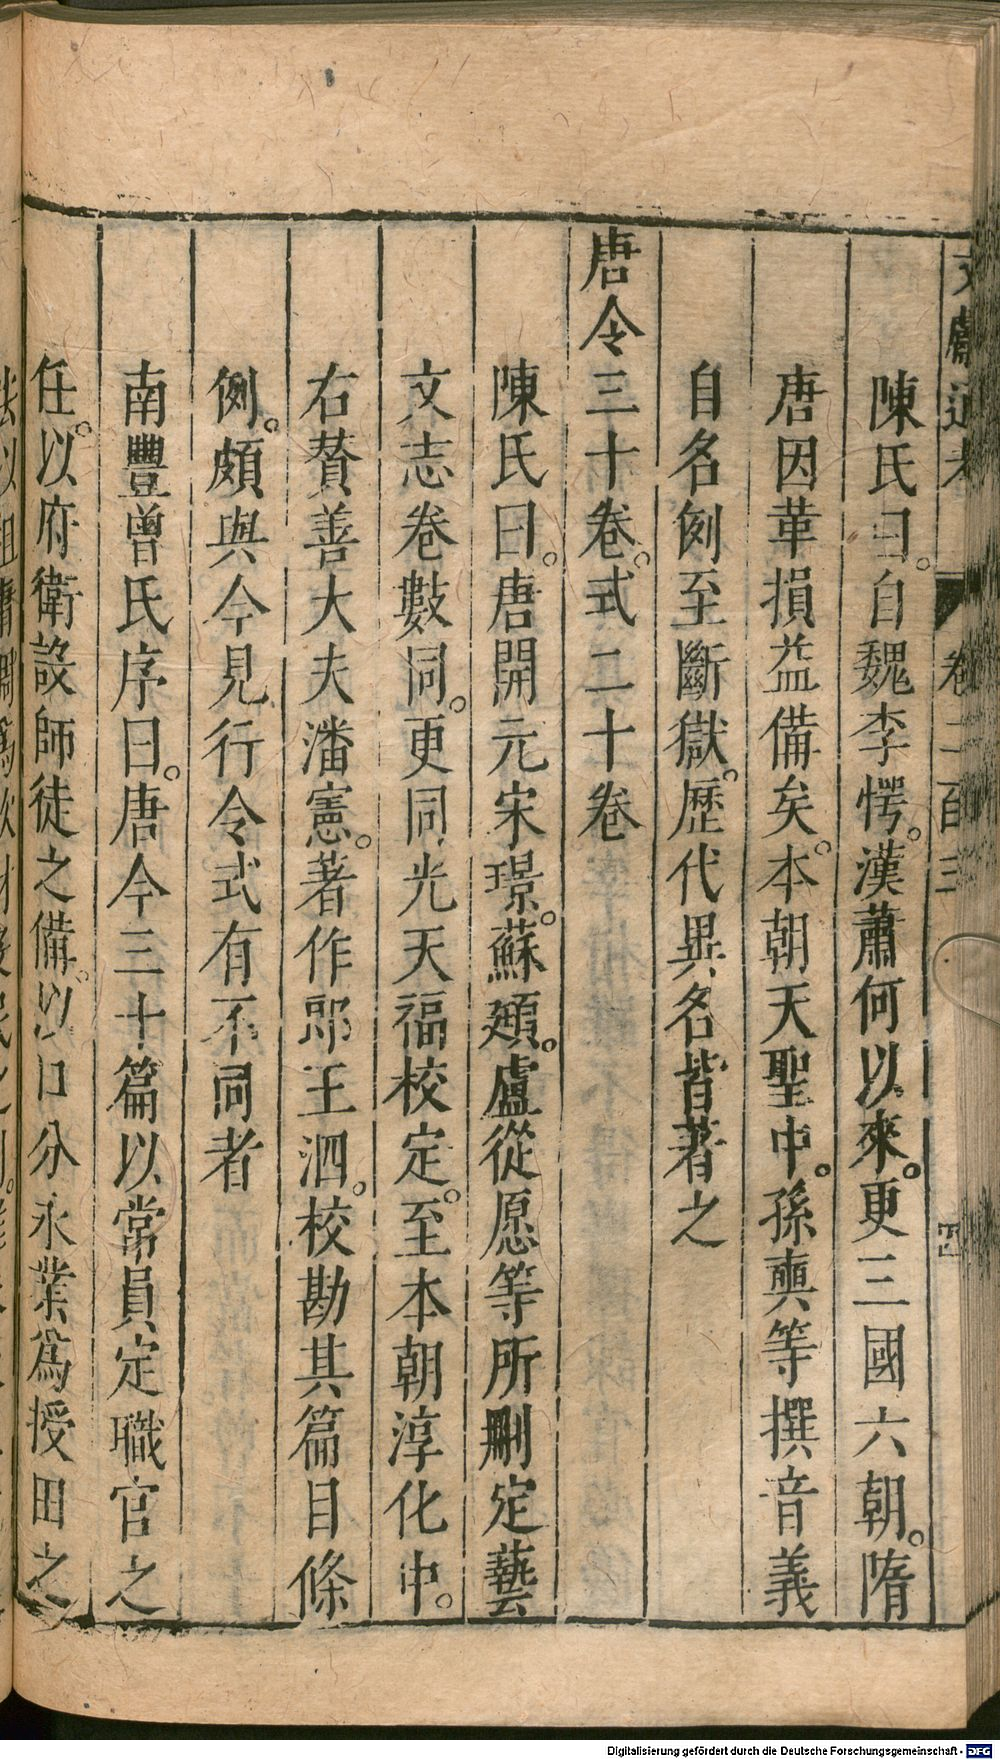 文獻通考 卷二百三 四
陳氏曰。自魏李愕。漢蕭何以來。更三國六朝。隋
唐因革損益備矣。本朝天聖中。孫奭等撰音義
自名例至斷獄。歷代異名皆著之
唐令三十卷。式二十卷
陳氏曰。唐開元宋璟。蘇頲。盧從愿等所刪定藝
文志卷數同。更同光天福校定。至本朝淳化中。
右贊善大夫潘憲。著作郎王泗。校勘其篇目條
例。頗與今見行令式有不同者
南豐曾氏序曰。唐令三十篇以常員定職官之
任。以府衛設師徒之備。以口分永業爲授田之
Digitalisierung gefördert durch die Deutsche Forschungsgemeinschaft - DFG